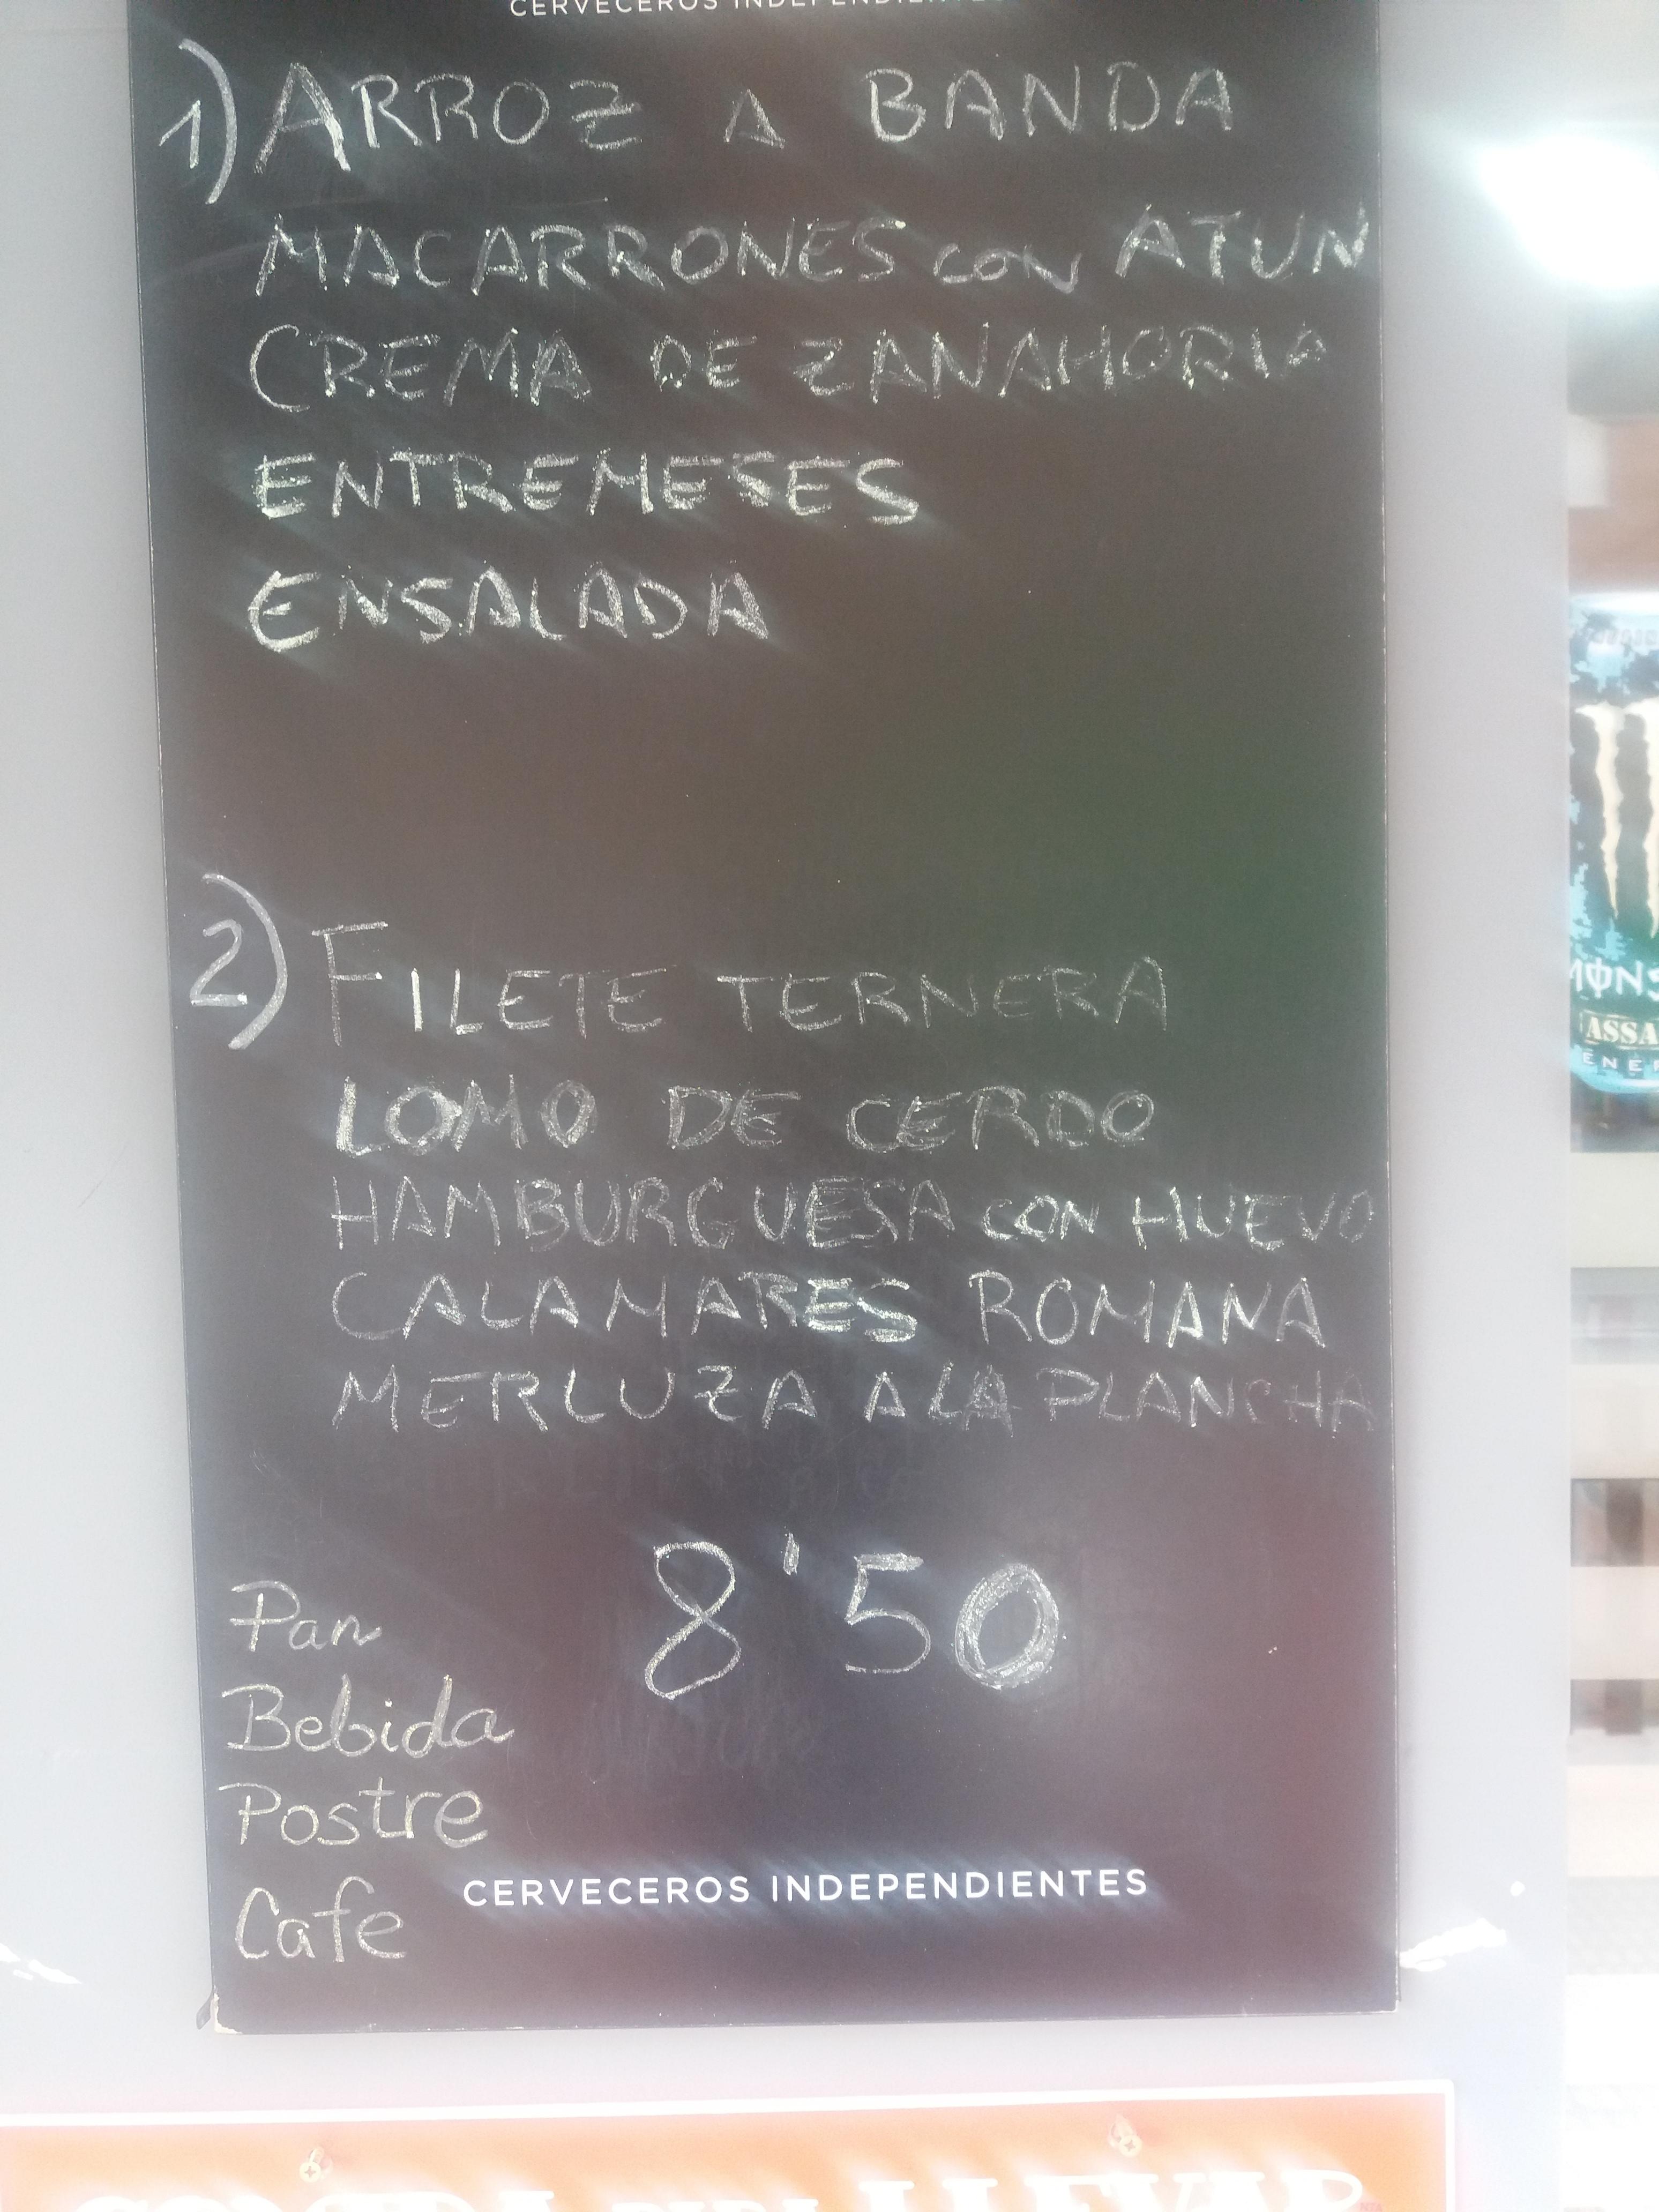 CERVECEROS INDEPENDIENTES
1) ARROZ A BANDA
MACARRONES CON ATUN
CREMA DE ZANAHORIA
ENTREMESES
ENSALADA
2) FILETE TERNERA
LOMO DE CERDO
HAMBURGUESA CON HUEVO
CALAMARES ROMANA
MERLUZA A LA PLANCHA
8'50
Pan
Bebida
Postre
Cafe
CERVECEROS INDEPENDIENTES
LLEVAR